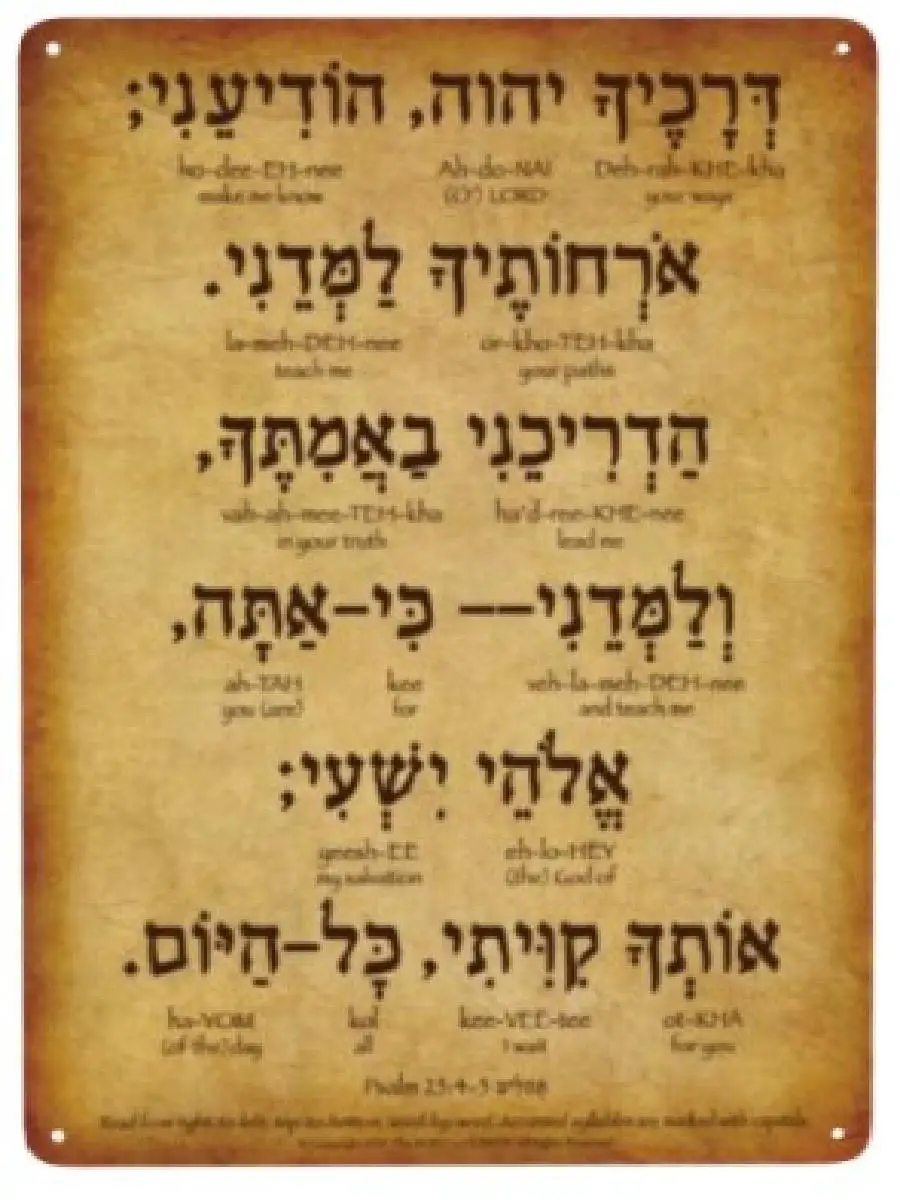 דְּרָכֶיךָ יהוה, הוֹדִיעֵנִי;
Deh-rah-KHE-kha Ah-do-NAI ho-dee-EH-nee
your ways (O') LORD make me know
אֹרְחוֹתֶיךָ לַמְּדֵנִי.
or-kho-TEH-kha la-meh-DEH-nee
your paths teach me
הַדְרִיכֵנִי בַאֲמִתֶּךָ,
ha'd-ree-KHE-nee vah-ah-mee-TEH-kha
lead me in your truth
וְלַמְּדֵנִי-- כִּי-אַתָּה,
veh-la-meh-DEH-nee kee ah-TAH
and teach me for you (are)
אֱלֹהֵי יִשְׁעִי;
eh-lo-HEY yeesh-EE
(the) God of my salvation
אוֹתְךָ קִוִּיתִי, כָּל-הַיּוֹם.
ot-KHA kee-VEE-tee kol ha-YOM
for you I wait all (of the) day
Psalm 25:4-5 תהלים
Read from right to left, top to bottom, word by word. Accented syllables are marked with capitals.